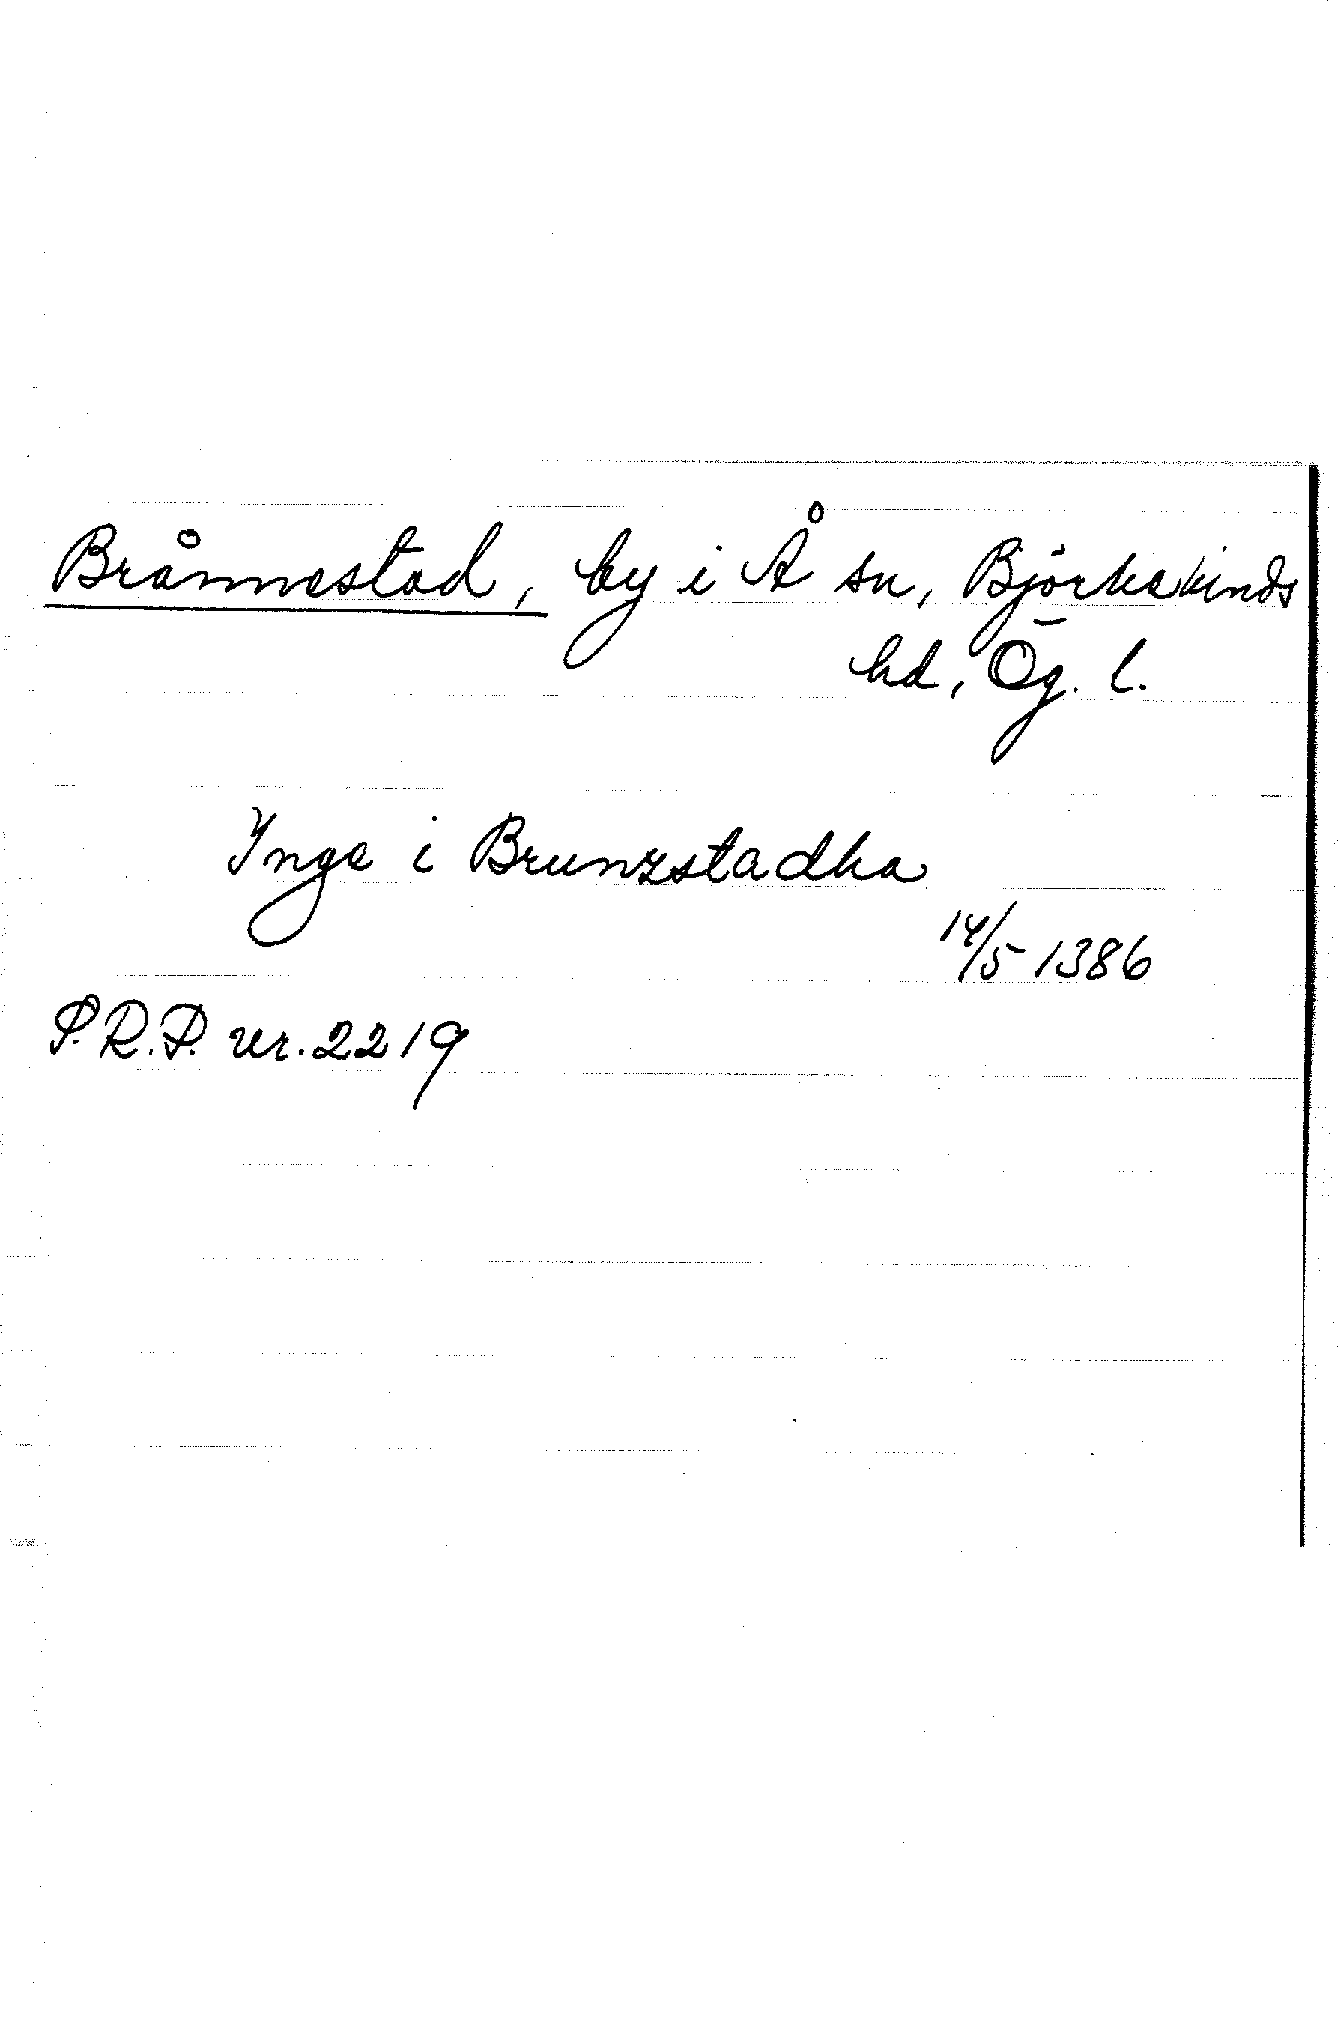 Brånnestad, by i Å sn, Björkekinds
hd, Ög. l.
Inge i Brunzstadha
14/5 1386
P.R.P. nr. 2219